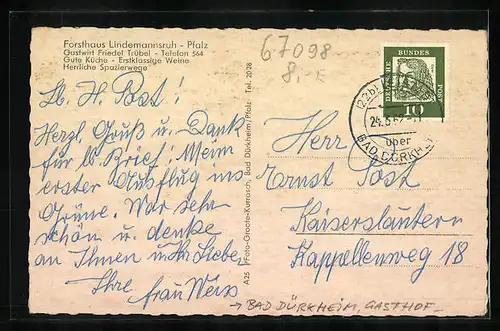 Forsthaus Lindemannsruh - Pfalz
Gastwirt Friedel Trübel - Telefon 564
Gute Küche - Erstklassige Weine
Herrliche Spazierwege
67098
8,-E
DEUTSCHE BUNDESPOST
10
24.5.62
über
BAD DÜRKHEIM
Lb. H. Post!
Herzl. Gruß u. Dank
für lb. Brief! Meim
erster Ausflug ins
Grüne. War sehr
schön u. denke
an Ihnen u. Ihr Liebe.
Ihre Frau Weiss
A 25 Foto-Groote-Kumrasch, Bad Dürkheim/Pfalz Tel. 2028
Herrn
Ernst Post
Kaiserslautern
Kappellenweg 18
BAD DÜRKHEIM, GASTHOF